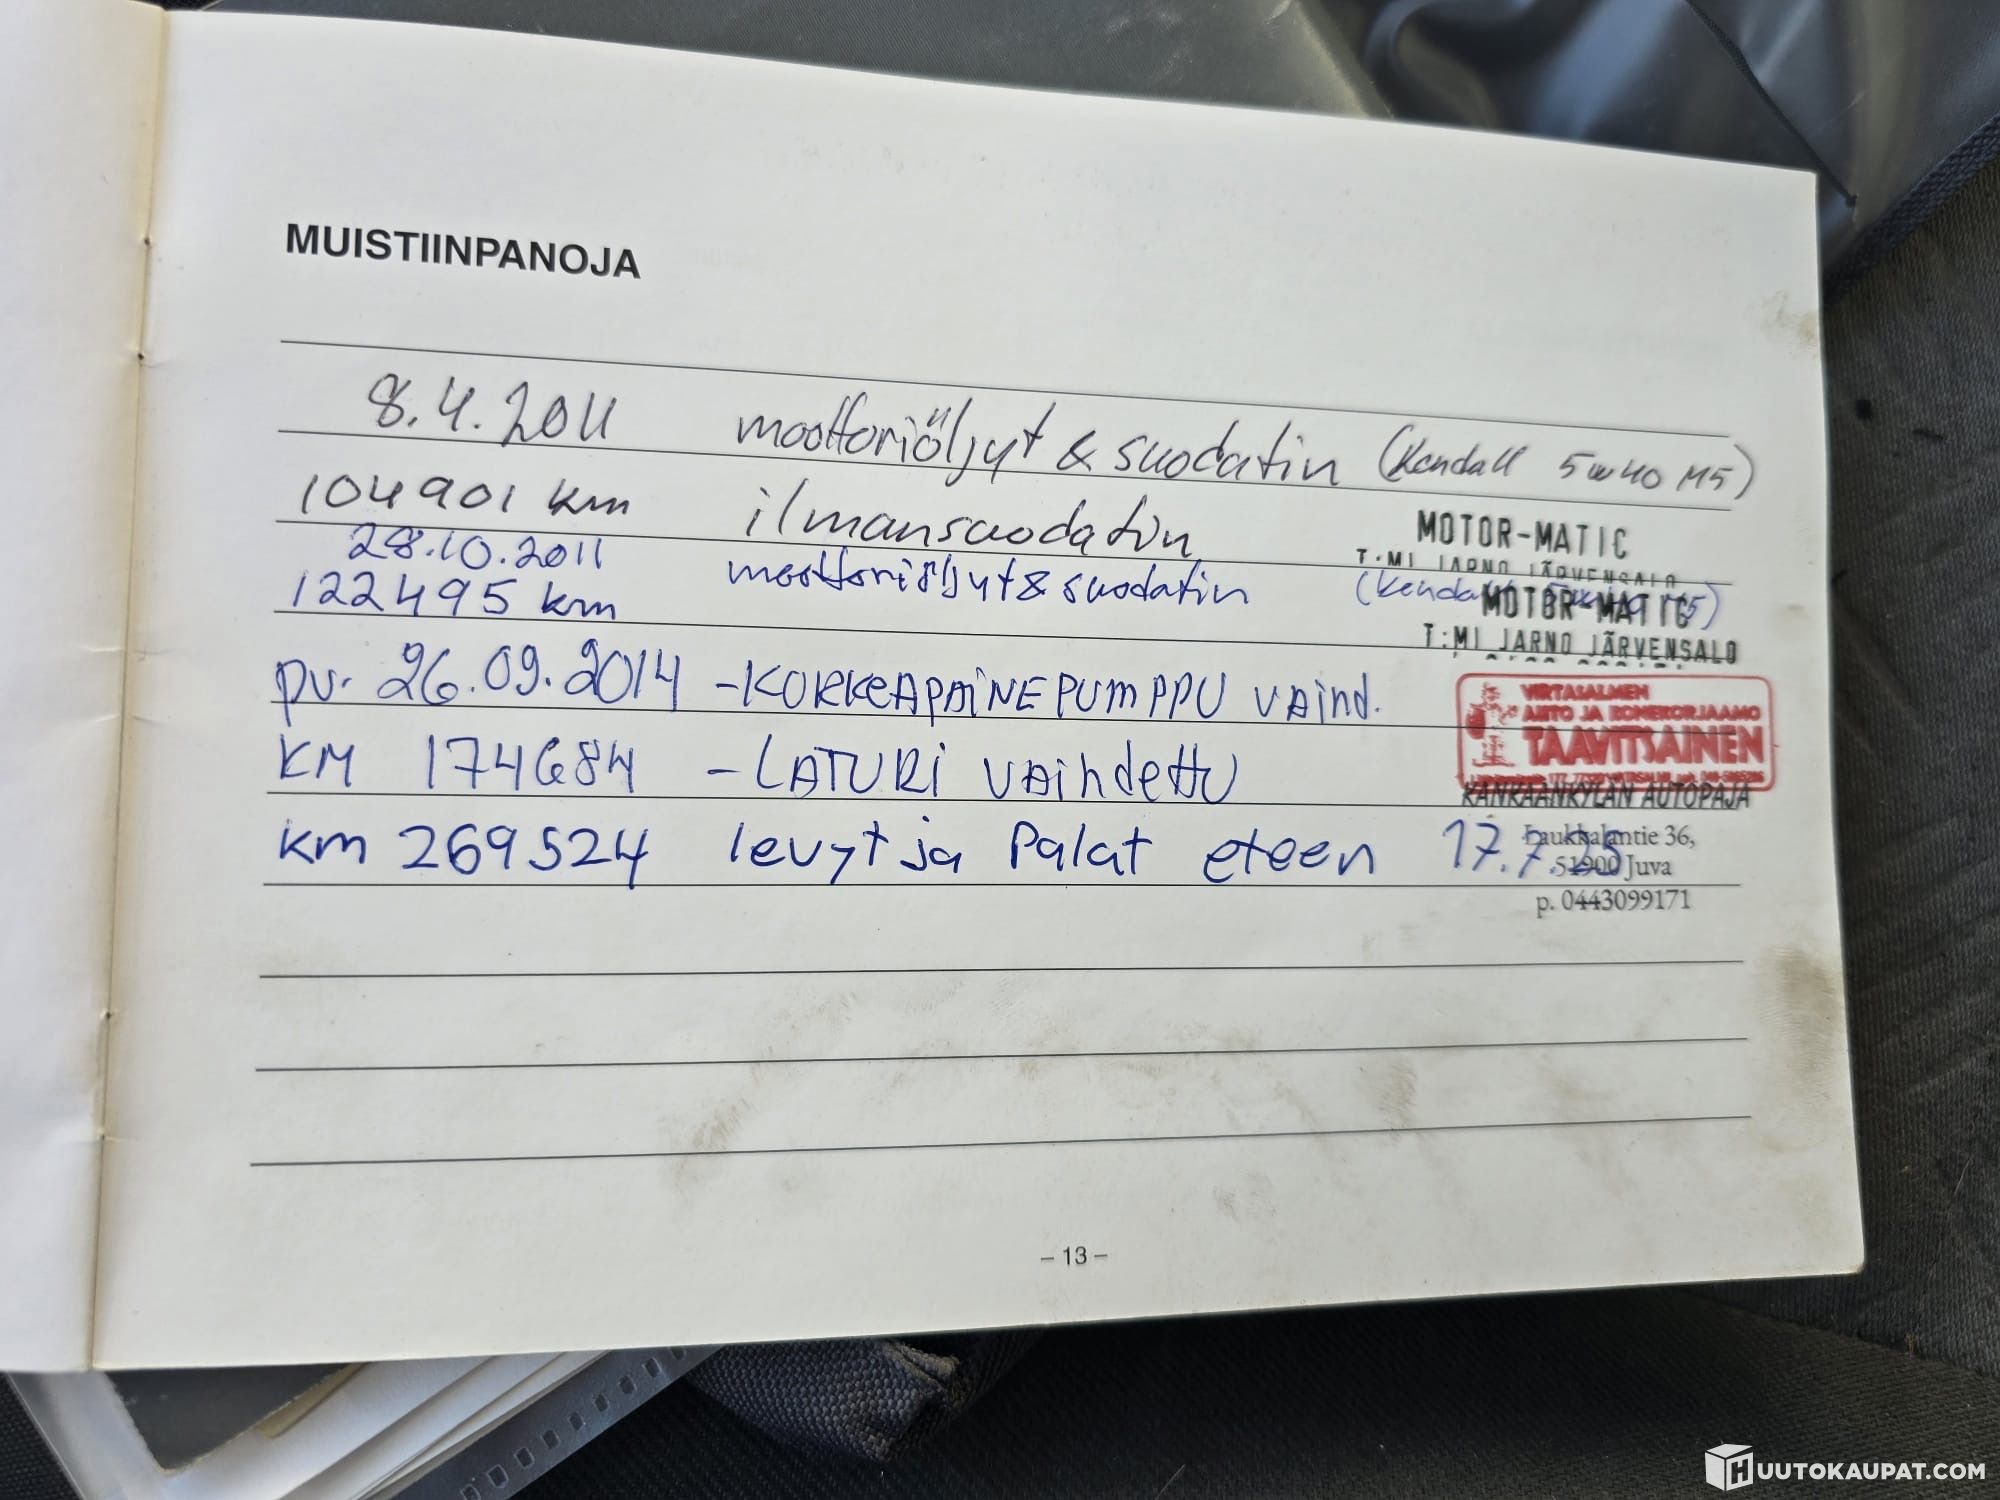 MUISTIINPANOJA
8.4.2011 moottoriöljyt & suodatin (Kendall 5w40 M5)
104901 km ilmansuodatin
MOTOR-MATIC
T:MI JARNO JÄRVENSALO
28.10.2011 moottoriöljyt & suodatin (kendall
122495 km
MOTOR-MATIC
T:MI JARNO JÄRVENSALO
pv. 26.09.2014 -KORKEAPAINEPUMPPU VAihd.
VIRTASALMEN
AUTO JA KONEKORJAAMO
TAAVITSAINEN
KM 174684 -LATURI VAihdettu
KANKAANKYLÄN AUTOPAJA
km 269524 levyt ja Palat eteen 17.7.25
Laukkalantie 36,
51900 Juva
p. 0443099171
– 13 –
HUUTOKAUPAT.COM